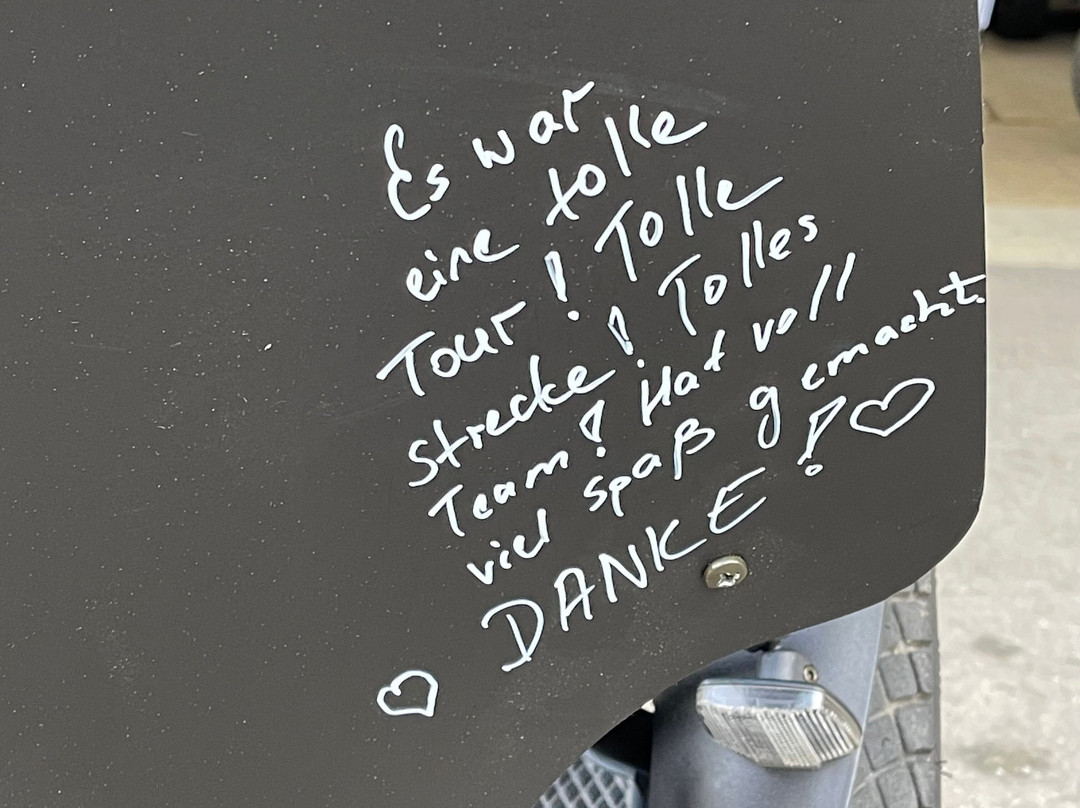 Es war
eine tolle
Tour! Tolle
Strecke! Tolles
Team! Hat voll
viel spaß gemacht.
DANKE!